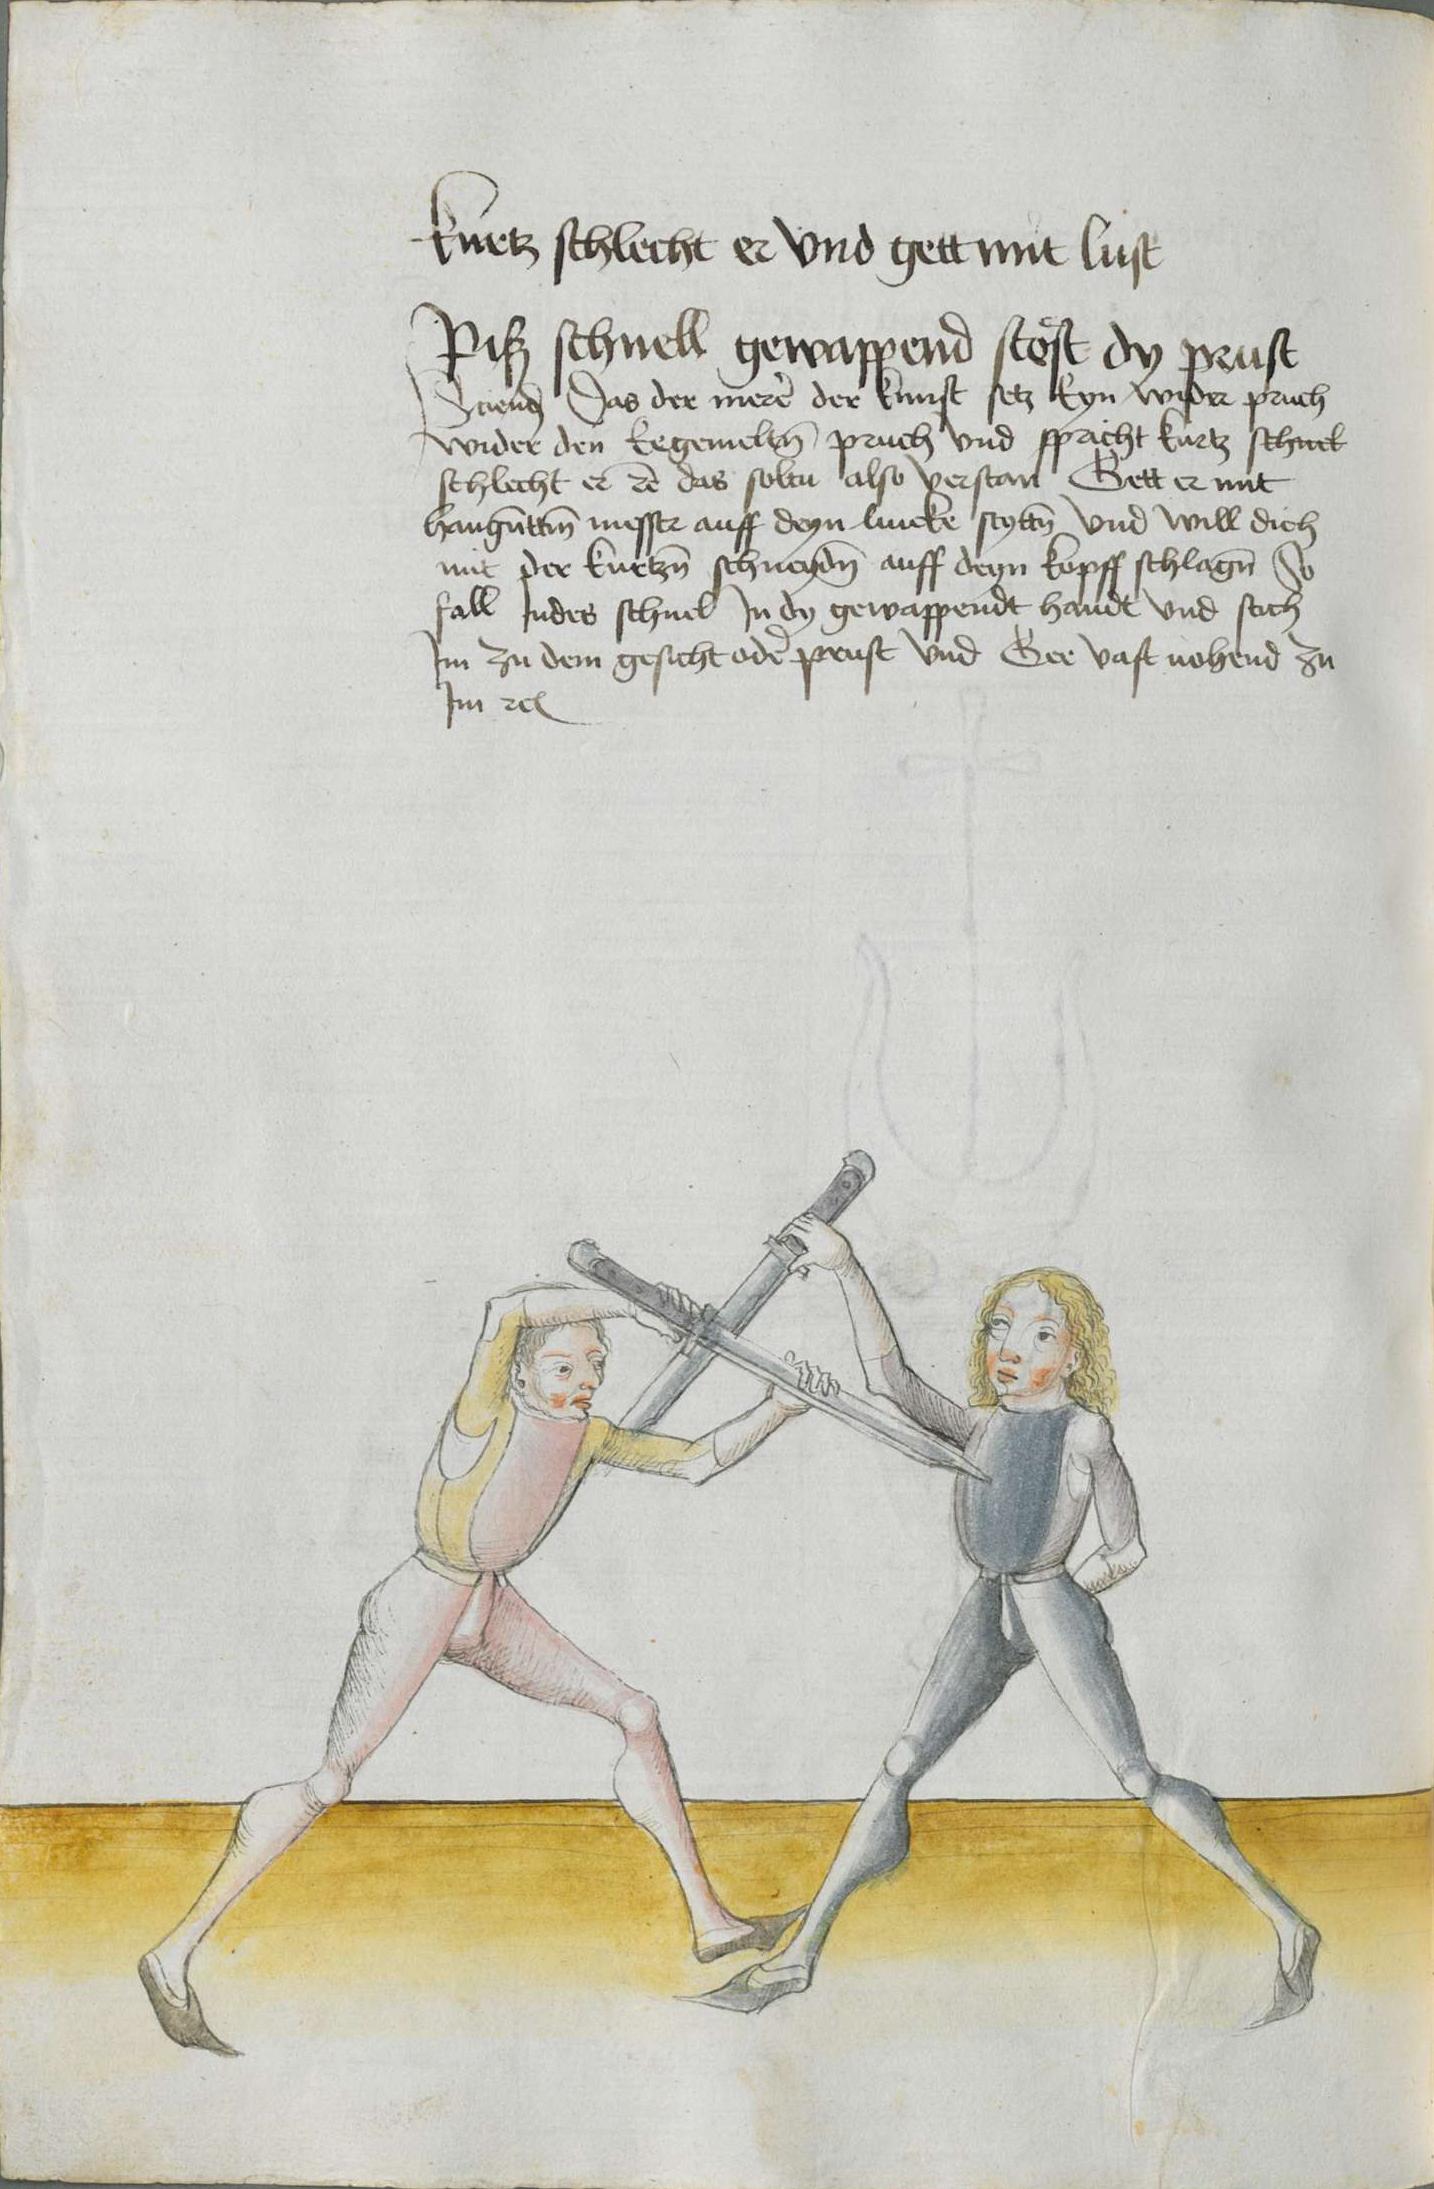 Kurtz schlecht er vnd gett mit lust
Piß schnell gewappend stoͤst dy prust
Das der merer der kunst setz eyn wider pruch
wider den Ee gemeltn̄ pruch vnd spricht kurtz schnel
schlecht er rē das soltu also verstan Gett er mit
hangūttm̄ messer auff deyn lincke seyttn̄ vnd will dich
mit der kurtzn̄ schneydn̄ auff deyn kopff schlagn̄ So
fall Indes schnel In dy gewappendt handt vnd stich
Im zu dem gesicht oder prust vnd Gee vast nohend zu
Im rc